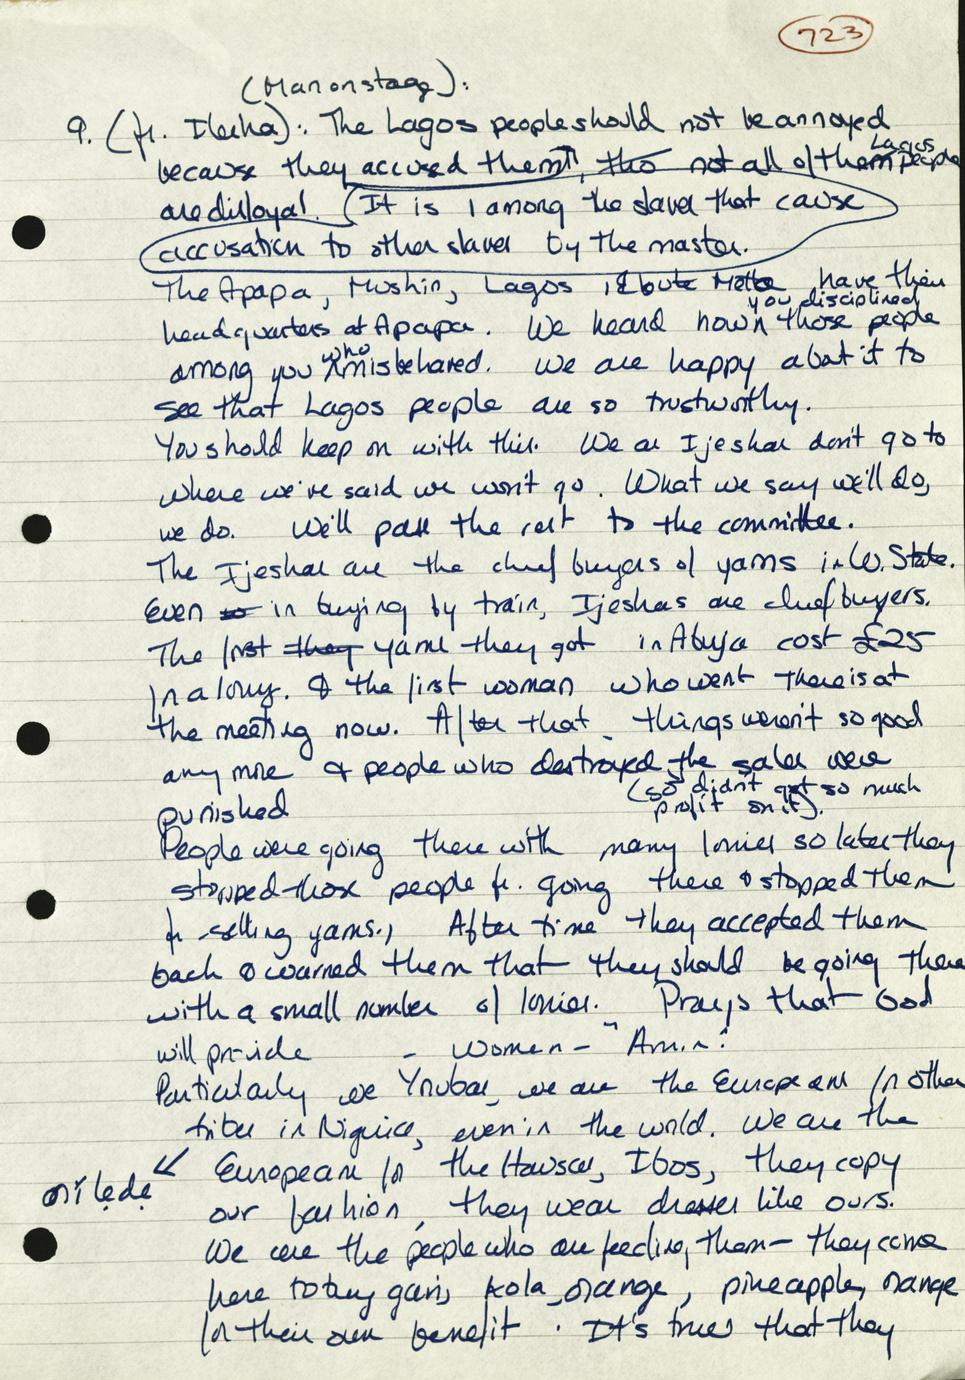 723
(Man on stage):
9. (fr. Ilesha): The Lagos people should not be annoyed
because they accused them, tho not all of them Lagos people
are disloyal. (It is 1 among the slaves that cause
accusation to other slaves by the master.)
The Apapa, Mushin, Lagos, Ebute Metta have their
headquarters at Apapa. We heard how you disciplined those people
among you who misbehaved. We are happy about it to
see that Lagos people are so trustworthy.
You should keep on with this. We as Ijeshas don't go to
where we've said we won't go. What we say we'll do,
we do. We'll pass the rest to the committee.
The Ijeshas are the chief buyers of yams in W. State.
Even so in buying by train, Ijeshas are chief buyers.
The first they yams they got in Abuja cost £25
in a lorry. & the first woman who went there is at
the meeting now. After that things weren't so good
any more & people who destroyed the sales were
punished (so didn't get so much
profit on it).
People were going there with many lorries so later they
stopped those people fr. going there & stopped them
fr selling yams. After time they accepted them
back & warned them that they should be going there
with a small number of lorries. Prays that God
will provide - Women - "Amin!
Particularly we Yorubas, we are the Europeans for other
tribes in Nigeria, even in the world. We are the
Europeans for the Hausas, Ibos, they copy
onílẹ̀dẹ
our fashion, they wear dresses like ours.
We are the people who are feeding them - they come
here to buy gari, kola, orange, pineapple, orange
for their own benefit. It's true that they